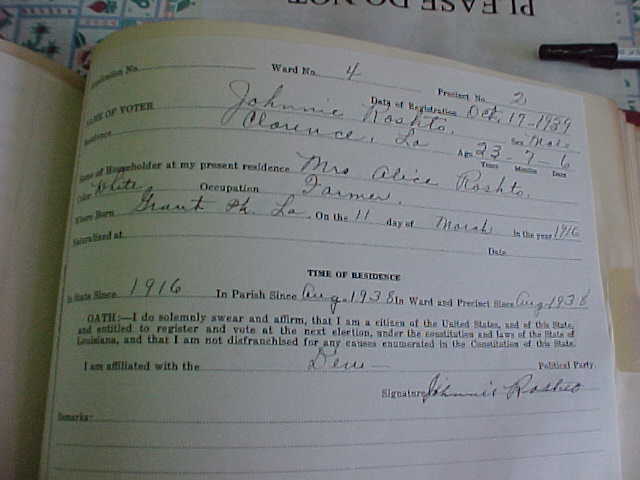 PLEASE DO NOT
Application No. Ward No. 4 Precinct No. 2
Date of Registration Oct. 17-1939
NAME OF VOTER Johnnie Roshto. Sex Male
Residence Clarence, La Age 23-7-6
Years Months Days
Name of Householder at my present residence Mrs Alice Roshto.
Color White. Occupation Farmer.
Where Born Grant Ph. La. On the 11 day of March in the year 1916
Naturalized at Date
TIME OF RESIDENCE
In State Since 1916 In Parish Since Aug. 1938 In Ward and Precinct Since Aug. 1938
OATH:—I do solemnly swear and affirm, that I am a citizen of the United States, and of this State,
and entitled to register and vote at the next election, under the constitution and laws of the State of
Louisiana, and that I am not disfranchised for any causes enumerated in the Constitution of this State.
I am affiliated with the Dem- Political Party.
Signature Johnnie Roshto
Remarks: